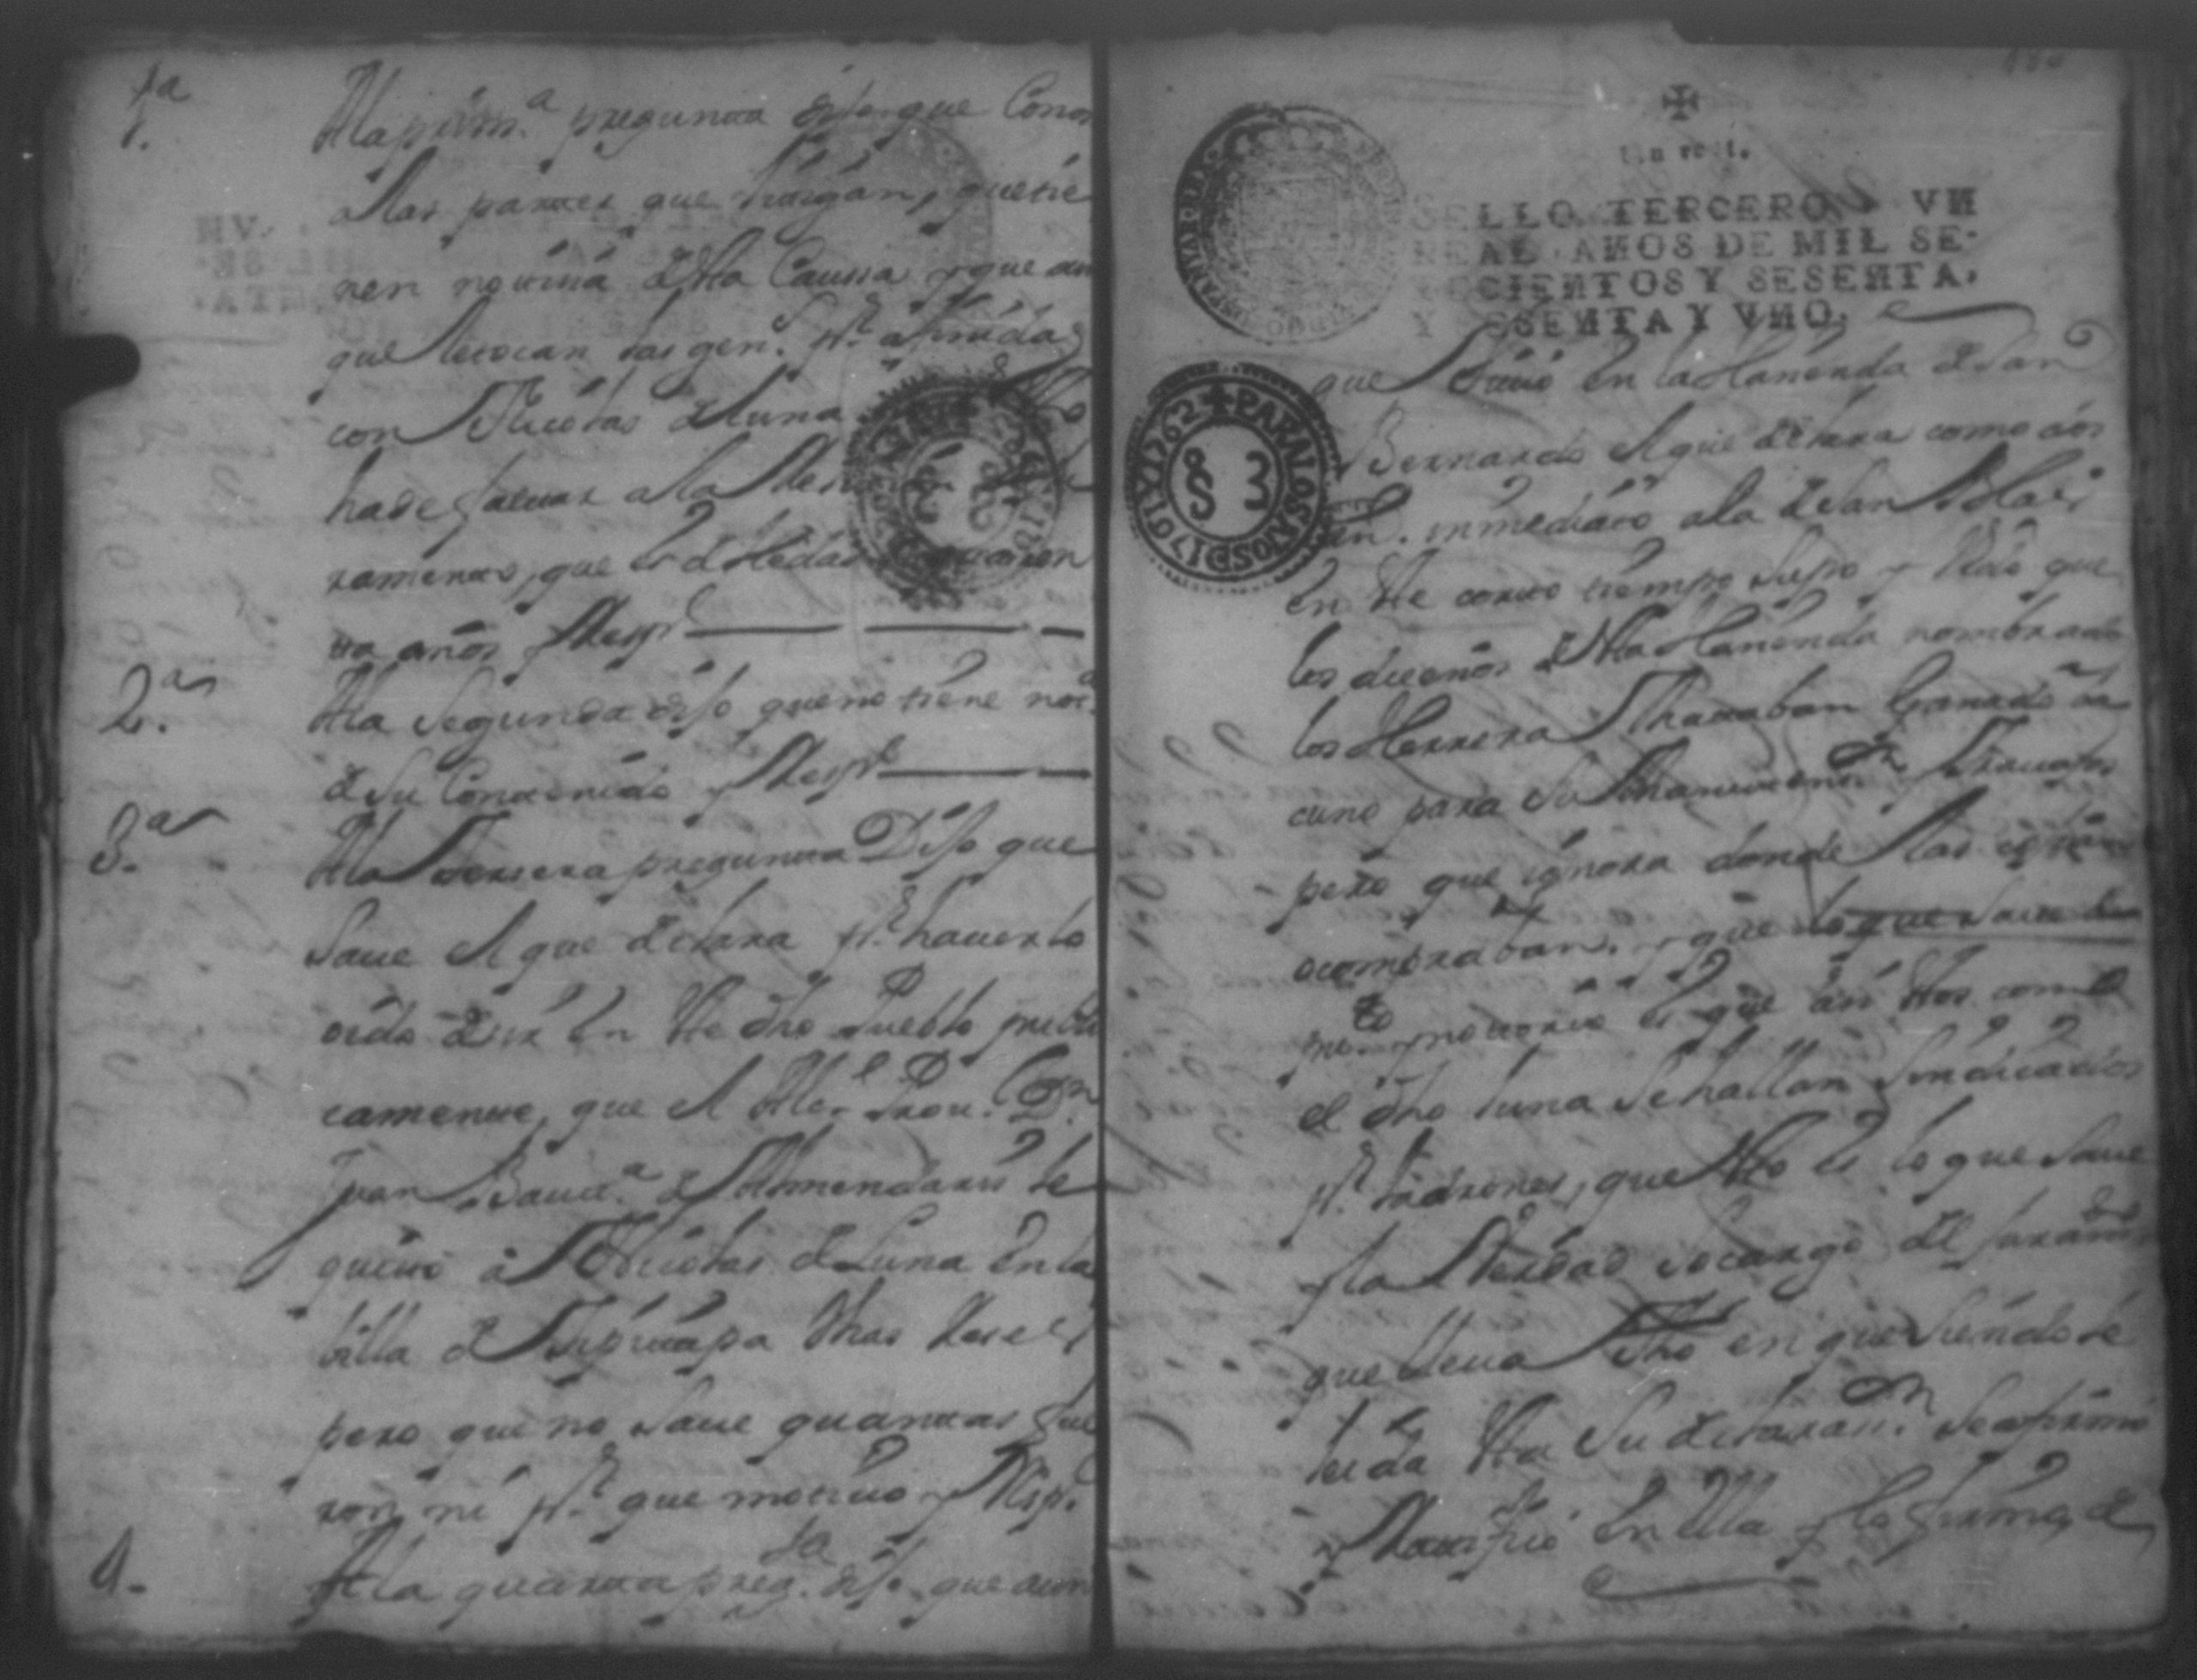 1.ª
A la prim.ª pregunta dijo que Conoce
a las partes que litigan, que tie
nen noticia desta Caussa y que aun
que le tocan las gen.s p.r afinidad
con Nicolas de Luna
ha de faltar a la
ramento, que es de hedad
ta años y Resp.de
2.ª
A la Segunda dijo que no tiene not.ª
de su Contenido y Resp.de
3.ª
A la Tersera pregunta Dijo que
Save el que declara p.r haverlo
oido decir en este dho Pueblo publi
camente, que el Alc.e Prov.l D.n
Juan Baut.ª de Armendaris le
quitó a Nicolas de Luna en la
Villa de Tipitapa Unas Reses
pero que no save quantas fue
ron ni p.r que motivo y Resp.
4.
A la quarta preg.ta dijo que aun
✠
Un real.
SELLO TERCERO, VN
REAL, AÑOS DE MIL SE-
TECIENTOS Y SESENTA,
Y SESENTA Y VNO.
PARA LOS AÑOS DE 1761 Y 1762
3
que vivio en la Hacienda de San
Bernardo el que declara como dos
inmediato a la de San Blas
en este corto tiempo supo y vido que
los dueños desta Hacienda nombrado
los Herrera Mataban Ganado Ba
cuno para su Manutenc.n y Travajos
pero que ignora donde las
o compraban. y que lo que save de
pu.co y notorio es que asi estos como
el dho Luna se hallan Sindicados
p.r Ladrones, que esto es lo que save
y la Verdad so cargo del juram.to
que lleva fho en que siendole
leida esta su declaracion.n se afirmó
y Ratificó en ella y lo firma, de